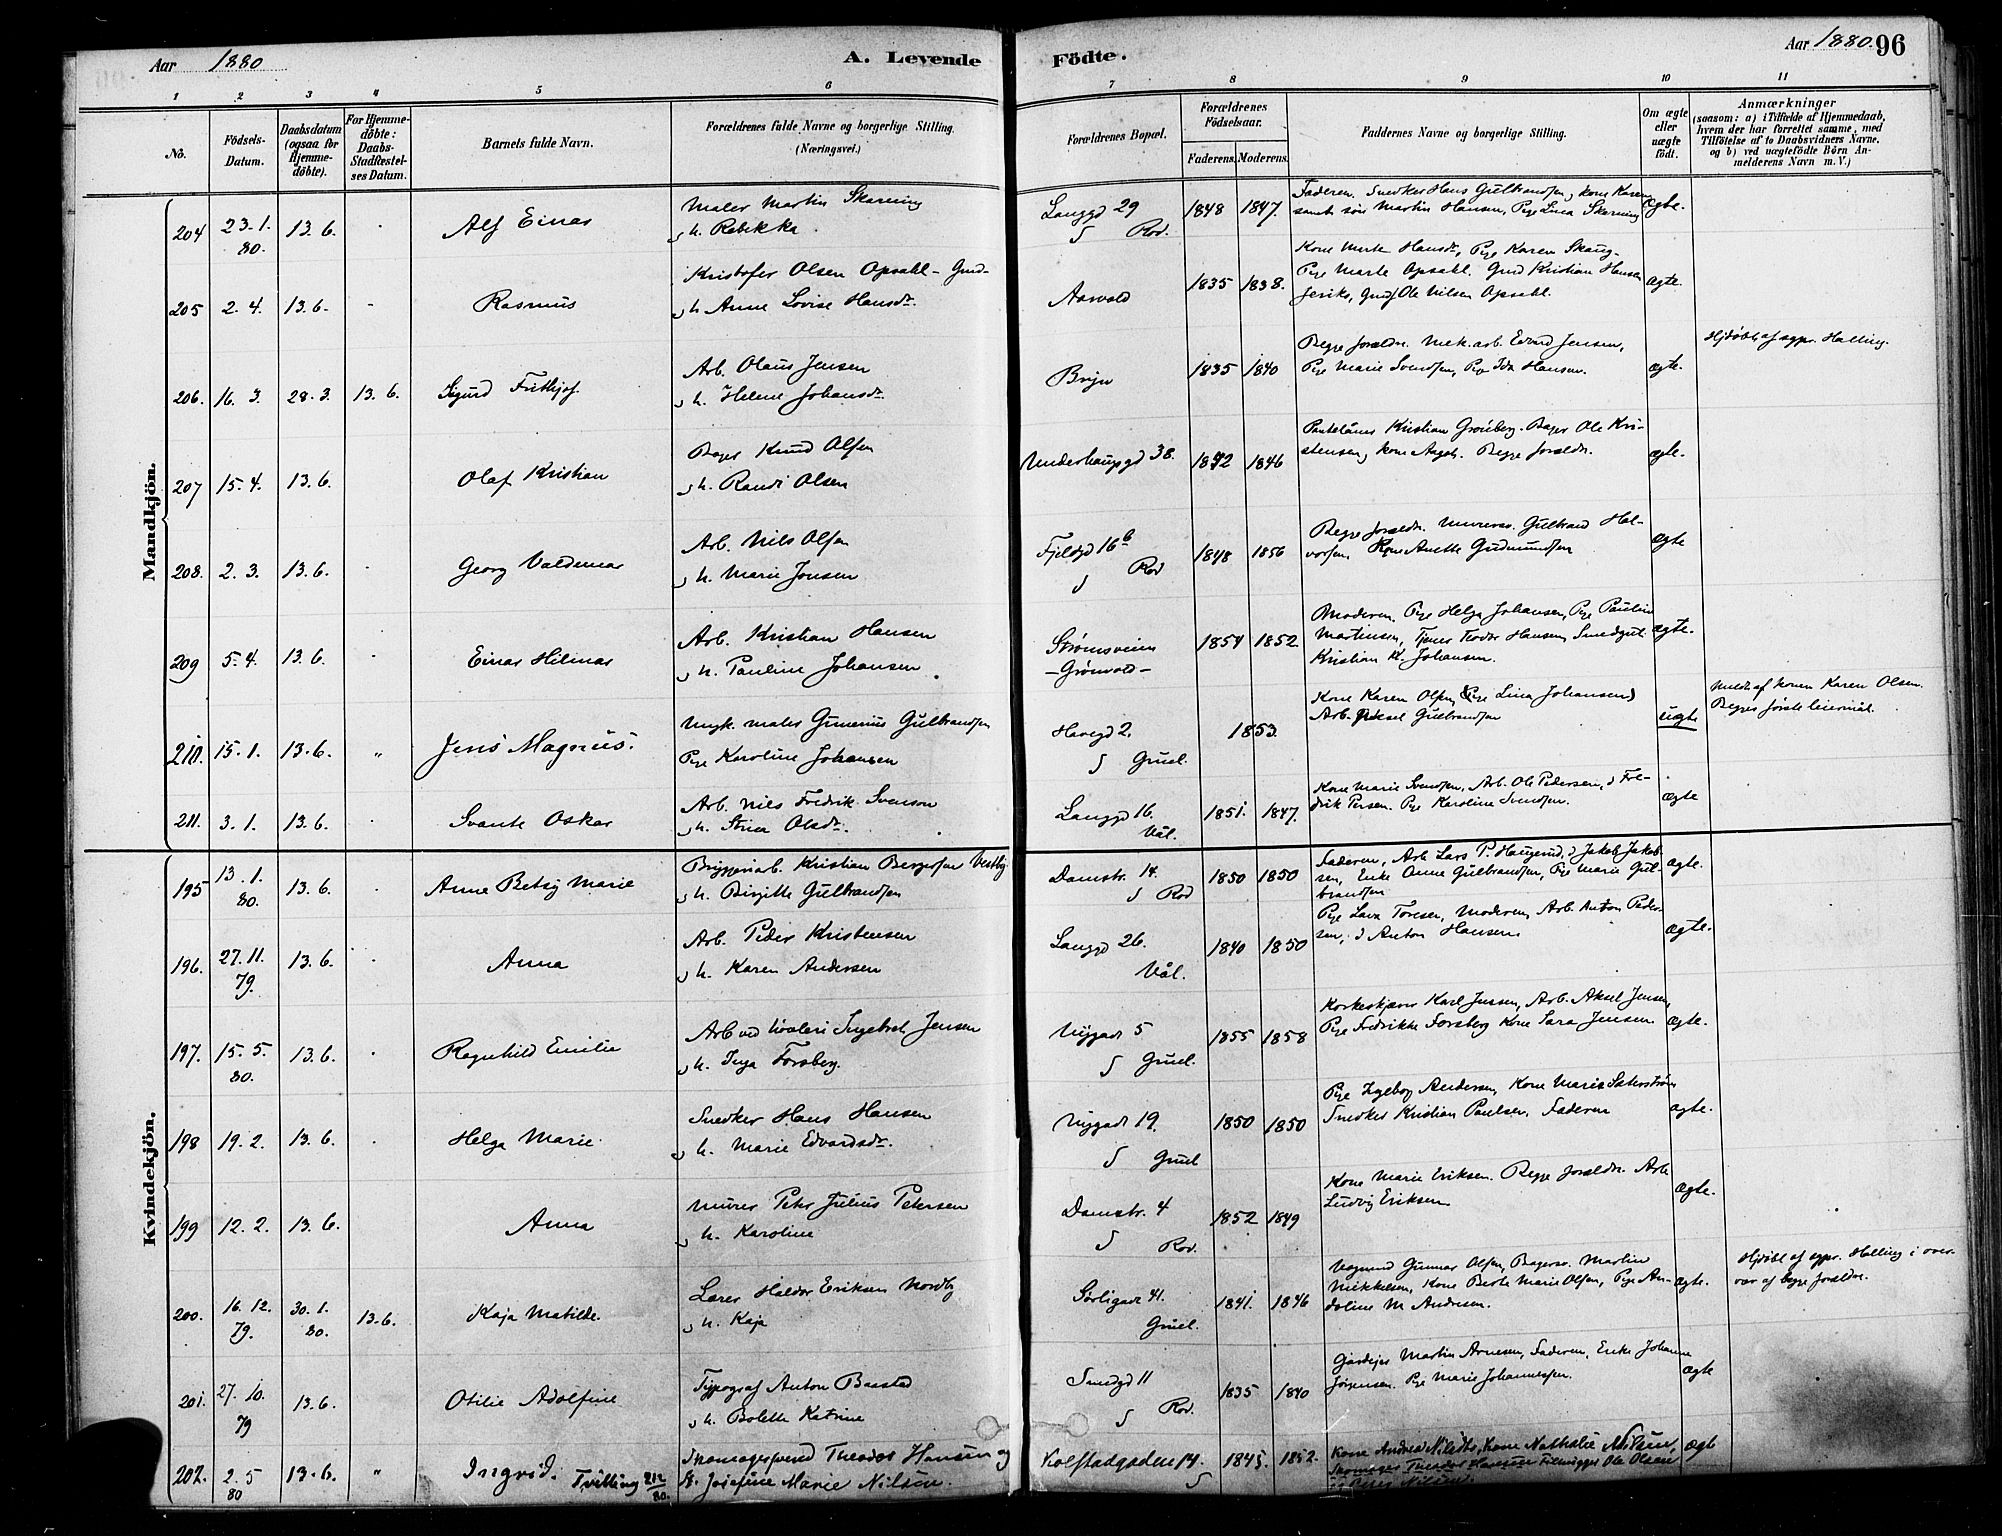 Aar 1880
A. Levende
Födte.
Aar 1880. 96
1 2 3 4 5 6 7 8 9 10 11
No.
Födsels-
Datum.
Daabsdatum
(ogsaa for
Hjemme-
döbte).
For Hjemme-
döbte:
Daabs-
Stadfæstel-
ses Datum.
Barnets fulde Navn.
Forældrenes fulde Navne og borgerlige Stilling.
(Næringsvei.)
Forældrenes Bopæl.
Forældrenes
Födselsaar.
Faderens. Moderens.
Faddernes Navne og borgerlige Stilling.
Om ægte
eller
uægte
födt.
Anmærkninger
(saasom: a) i Tilfælde af Hjemmedaab,
hvem der har forrettet samme, med
Tilföielse af to Daabsvidners Navne,
og b) ved uægtefödte Börn An-
melderens Navn m. V.)
Mandkjön.
204 23. 1. 80. 13. 6. Alf Einar
Maler Martin Skarning
h. Rebekka.
Langgd 29
Rod.
1848 1847.
Faderen. Snedker Hans Gulbrandsen, kone Karen
samt søn Martin Hansen, Pige Lina Skarning
ægte.
205 2. 4. 13. 6. Rasmus
Kristofer Olsen Opsahl - Gmd-
h. Anne Lovise Hansdr.
Aavold
1835 1838.
Kone Marte Hansdr, Pige Karen Skaug-
Pige Marte Opsahl. Gmd Kristian Hansen
Ole Nilsen Opsahl.
ægte.
206. 16. 3. 28. 3. 13. 6. Sigurd Frithjof
Arb. Olaus Jensen
h. Helene Johansdr.
Bryn
1835 1840
Begge foreldr. Mek. arb. Edvard Jensen,
Pige Marie Svendsen, Pige Ida Hansen.
ægte.
Hjdøbt af sgpr. Halling.
207 15. 4. 13. 6. Olaf Kristian
Bager Knud Olsen
h. Randi Olsen
Underhaugsgd 38.
1842 1846
Pantelåner Kristian Grönberg. Bager Ole Kri-
stensen, kone Begge foreldr.
ægte.
208. 2. 3. 13. 6. Georg Valdemar
Arb. Nils Olsen
h. Marie Jonsen
Fjeldgd 16 b
Rod
1848 1856
Begge foreldr. Murersv. Gulbrand Hal-
vorsen, Kone Anette Gudmundsen
ægte
209 5. 4. 13. 6. Einar Hilmar
Arb. Kristian Hansen
h. Pauline Johansen
Strømsveien
- Grönvold -
1854 1852.
Moderen. Pige Helga Johansen, Pige Pauline
Martinsen, Tjener Teodor Hansen, Smedgut
Kristian K. Johansen.
ægte.
210. 15. 1. 13. 6. „ Jens Magnus.
Ungk. maler Gunerius Gulbrandsen
Pige Karoline Johansen
Havegd 2.
Gruel.
1853.
Kone Karen Olsen, Pige Lina Johansen,
Arb. Aksel Gulbrandsen
uægte
Meldt af konen Karen Olsen.
Begges første leiermål.
211. 3. 1. 13. 6. Svante Oskar
Arb. Nils Fredrik Svenson
h. Stina Olsdr.
Langgd 16.
Vål.
1851. 1847.
Kone Marie Svendsen, Arb. Ole Pedersen, d Fre-
drik Persen. Pige Karoline Svendsen.
ægte
Kvindekjön.
195 13. 1. 80. 13. 6. Anne Betsy Marie
Bryggeriarb. Kristian Bergersen Vestby
h. Birgitte Gulbrandsen
Damstr. 14.
Rod
1850 1850
Faderen, Arb. Lars P. Haugerud, d Jakob Jakob-
sen, Enke Anne Gulbrandsen, Pige Marie Gul-
brandsen
ægte.
196. 27. 11. 79. 13. 6. Anna
Arb. Peder Kristensen
h. Karen Andersen
Langgd 26.
Vål.
1840 1850
Pige Lava Toresen, Moderen, Arb. Anton Peder-
sen, d Anton Hansen
ægte.
197. 15. 5. 80. 13. 6. Ragnhild Emilie
Arb ved Ingebret Jensen
h. Inga Forsberg.
Nygade 5
Gruel.
1855 1858
Korkeskjærer Karl Jensen, Arb. Aksel Jensen,
Pige Fredrikke Forsberg Kone Sara Jensen
ægte.
198 19. 2. 13. 6. Helga Marie
Snedker Hans Hansen
h. Marie Edvardsdr.
Nygade 19.
Gruel
1850 1850
Pige Ingeborg Andersen, Kone Marie Säterström
Snedker Kristian Paulsen, Faderen
ægte.
199 12. 2. 13. 6. Anna
Murer Petr Julius Petersen
h. Karoline
Damstr. 4
Rod.
1852 1849
Kone Marie Eriksen. Begge foreldr. Arb.
Ludvig Eriksen
ægte.
200. 16. 12. 79. 30. 1. 80. 13. 6. Kaja Matilde.
Lærer Haldor Eriksen Nordby
h. Kaja
Sörligade 41.
Gruel.
1841. 1846
Vognmd Gunnar Olsen, Bagersv. Martin
Mikkelsen, Kone Berte Marie Olsen, Pige An-
doline M Andresen.
ægte.
Hjdøbt af sgpr. Halling i over-
vær af begge foreldr.
201. 27. 10. 79 13. 6. Otilie Adolfine
Typograf Anton Baastad
h. Bolette Katrine
Smedgd 11
Rod.
1835 1840
Gårdejer Martin Arnesen, Faderen, Enke Johanne
Jörgensen. Pige Marie Johannessen.
ægte
202. 2. 5 80 13. 6. „ Ingvid. Tvilling 212/80.
Skomagersvend Theodor Hansen og
H. Josefine Marie Nilsen.
Kolstadgaden 14.
1845. 1852.
Kone Andrea Kone Nathalie Nilsen,
Skomager Theodor Hansen Ole Olsen
Nilsen.
ægt